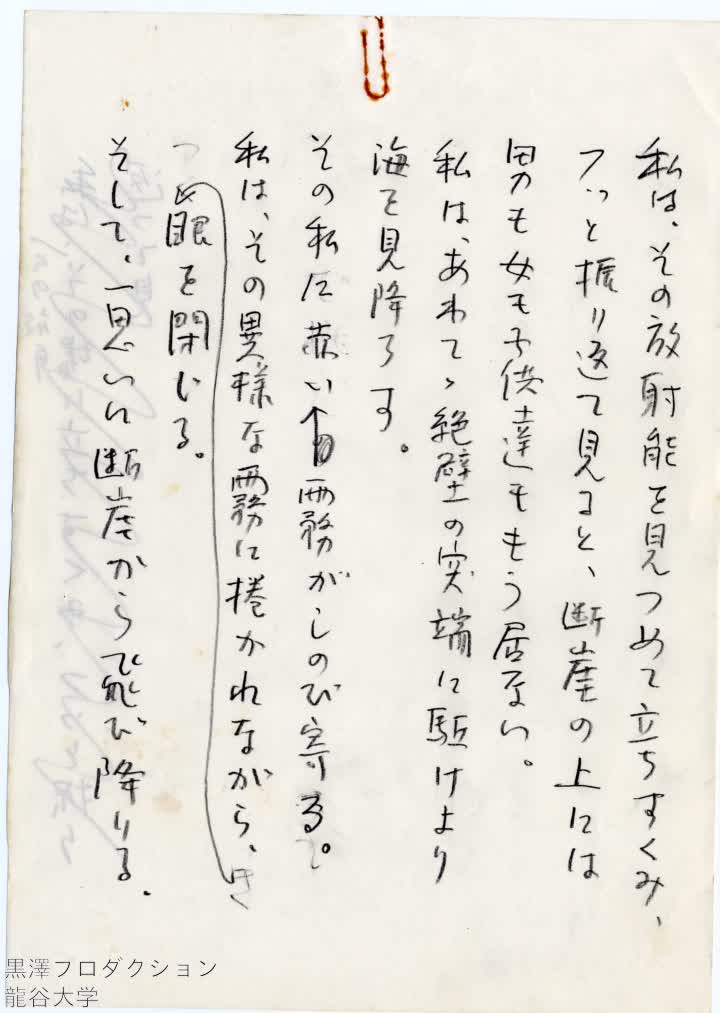 私は、その放射能を見つめて立ちすくみ、
フッと振り返って見ると、断崖の上には
男も女も子供達ももう居ない。
私は、あわてゝ絶壁の突端に駈けより
海を見降ろす。
その私に赤い霧がしのび寄る。
私は、その異様な霧に捲かれながら、
眼を閉じる。
そして、一思いに断崖から飛び降りる。
黒澤プロダクション
龍谷大学